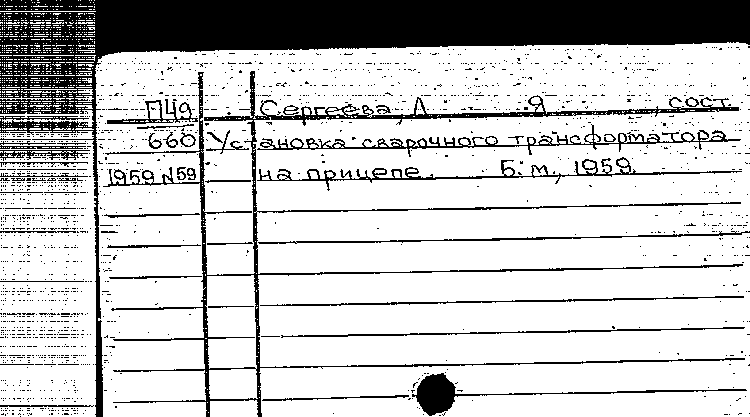 П49 Сергеева, Л Я , сост.
660 Установка сварочного трансформатора
1959 N59 на прицепе. Б. м., 1959.